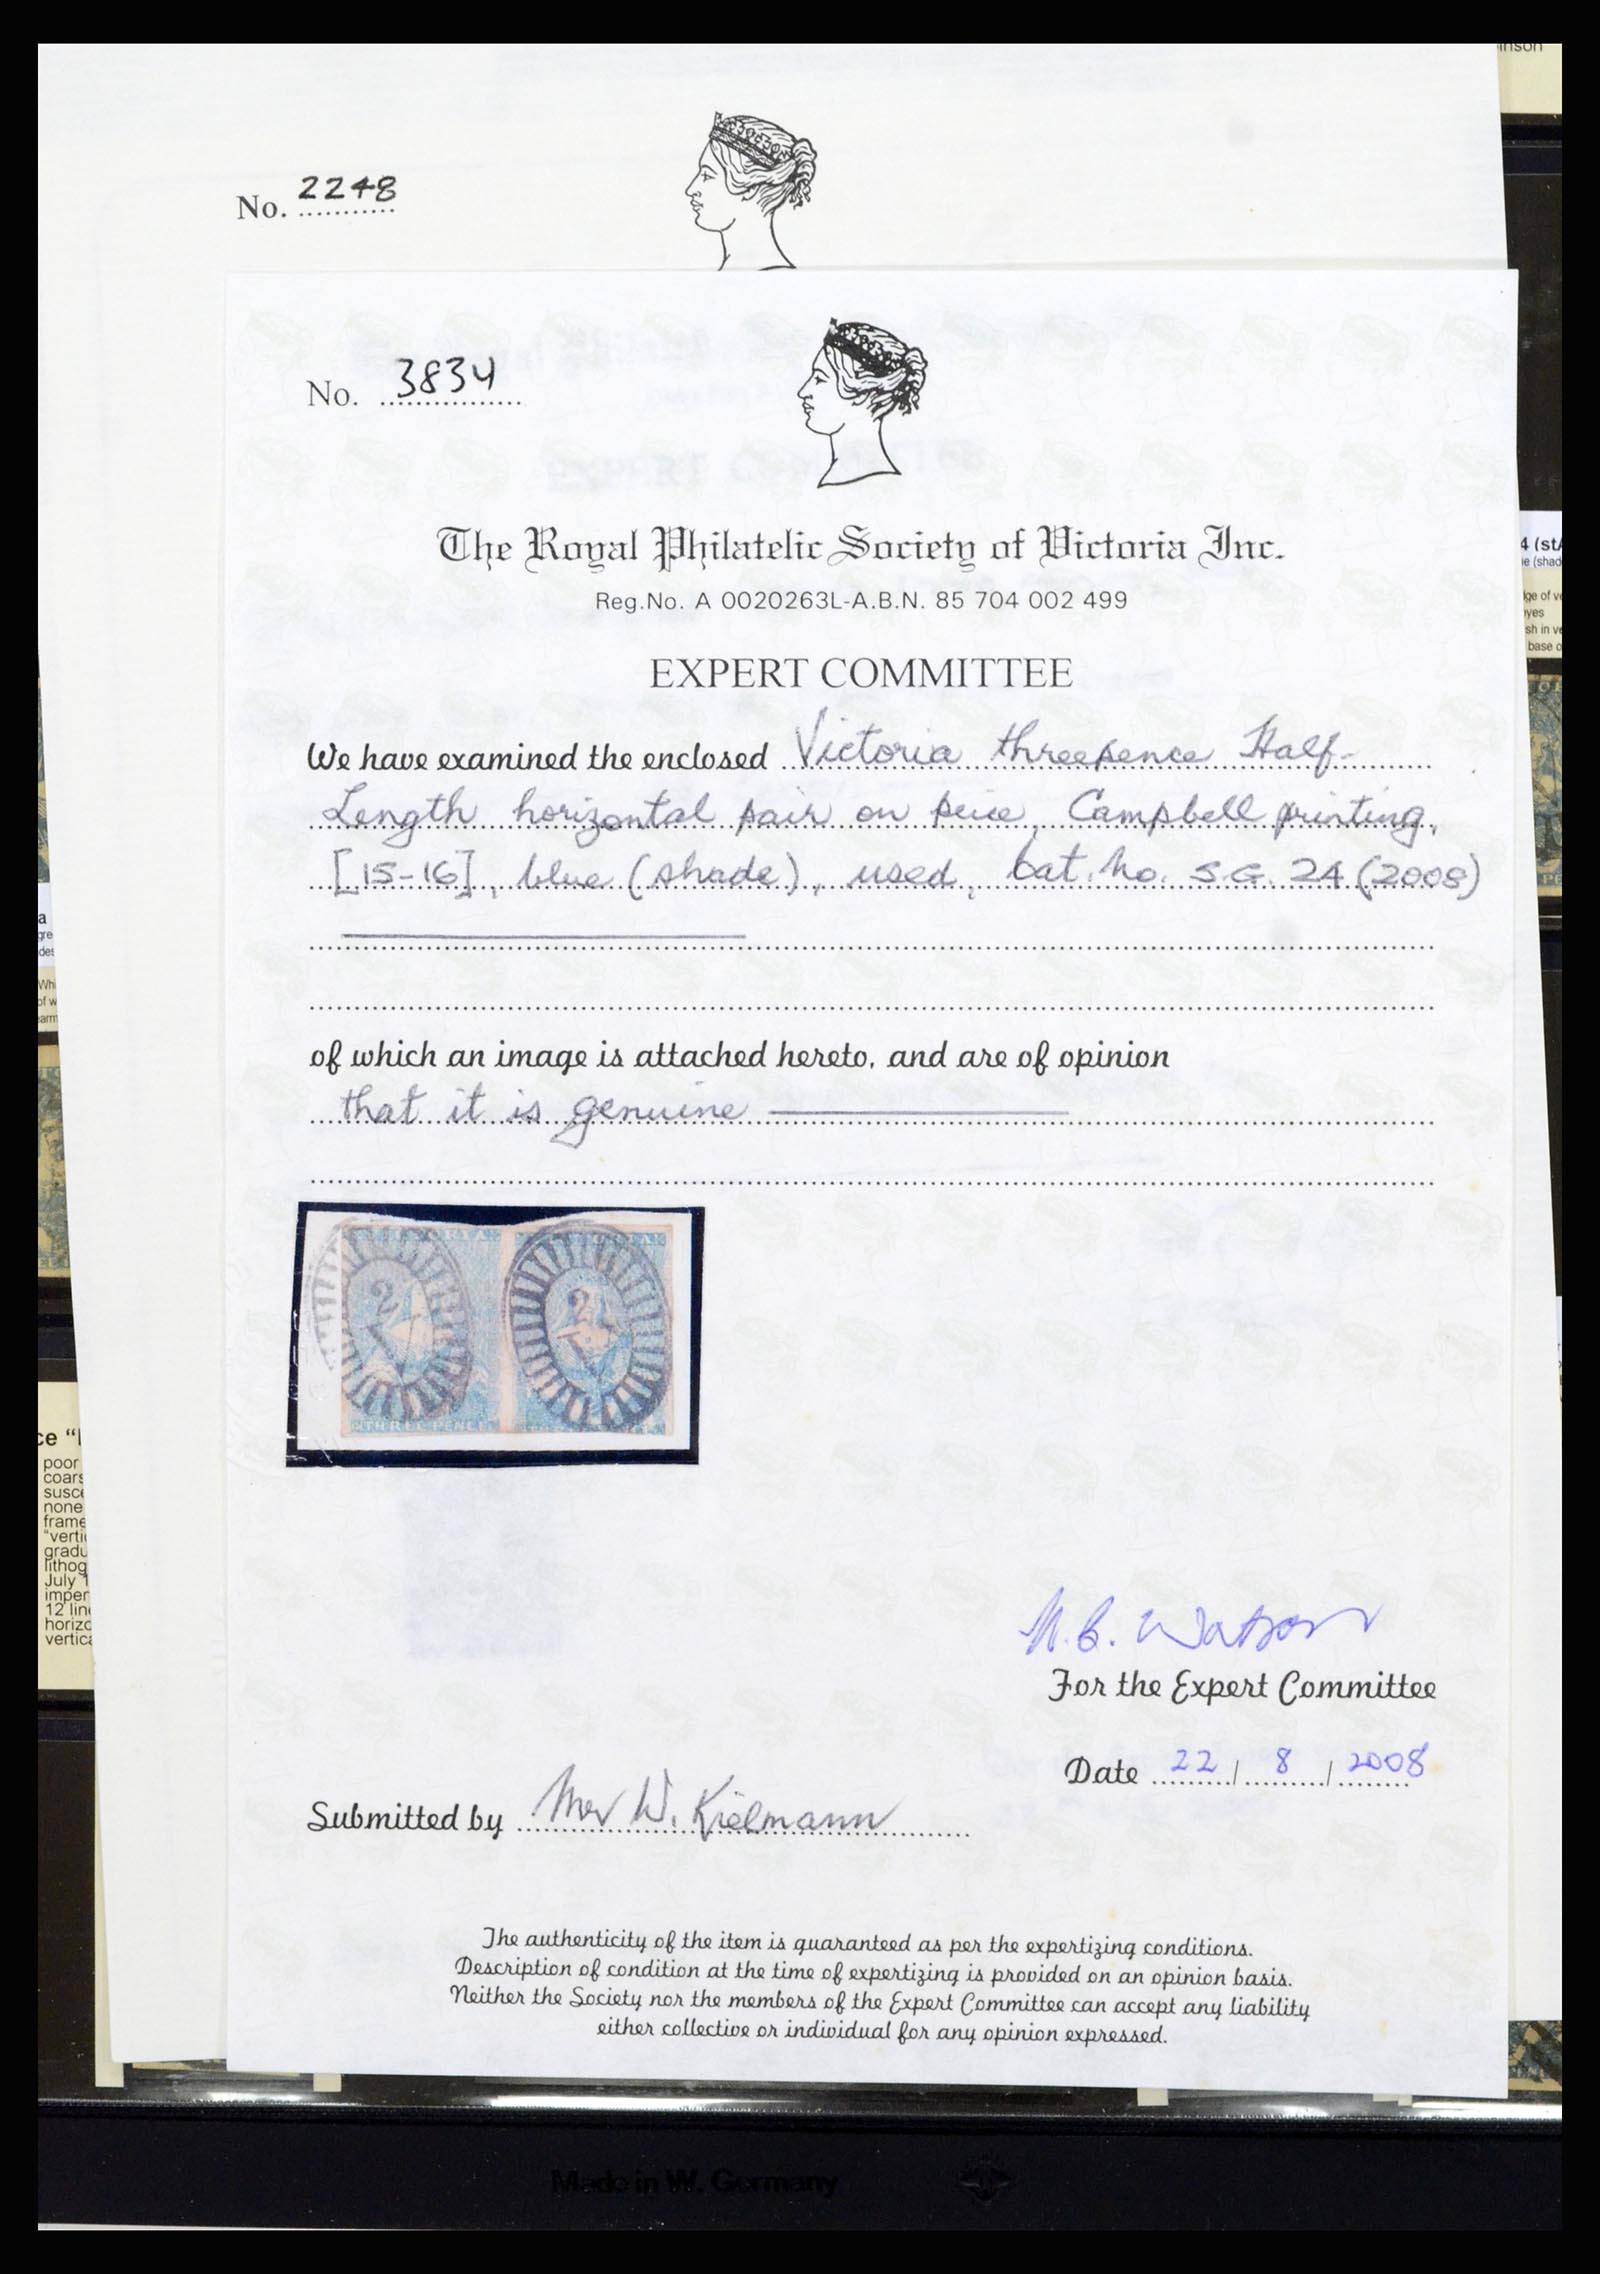 inson
No. 2248
No. 3834
The Royal Philatelic Society of Victoria Inc.
Reg.No. A 0020263L-A.B.N. 85 704 002 499
EXPERT COMMITTEE
We have examined the enclosed Victoria threepence Half-
Length horizontal pair on peice, Campbell printing,
[15-16], blue (shade), used, Cat. No. S.G. 24 (2008)
of which an image is attached hereto, and are of opinion
that it is genuine
THREE PENCE
N.B. Watson
For the Expert Committee
Date 22 / 8 / 2008
Submitted by Mev W. Kielmann
The authenticity of the item is guaranteed as per the expertizing conditions.
Description of condition at the time of expertizing is provided on an opinion basis.
Neither the Society nor the members of the Expert Committee can accept any liability
either collective or individual for any opinion expressed.
poor
coars
susce
none
frame
"verti
gradu
lithog
July 1
imper
12 line
horizo
vertica
Made in W. Germany